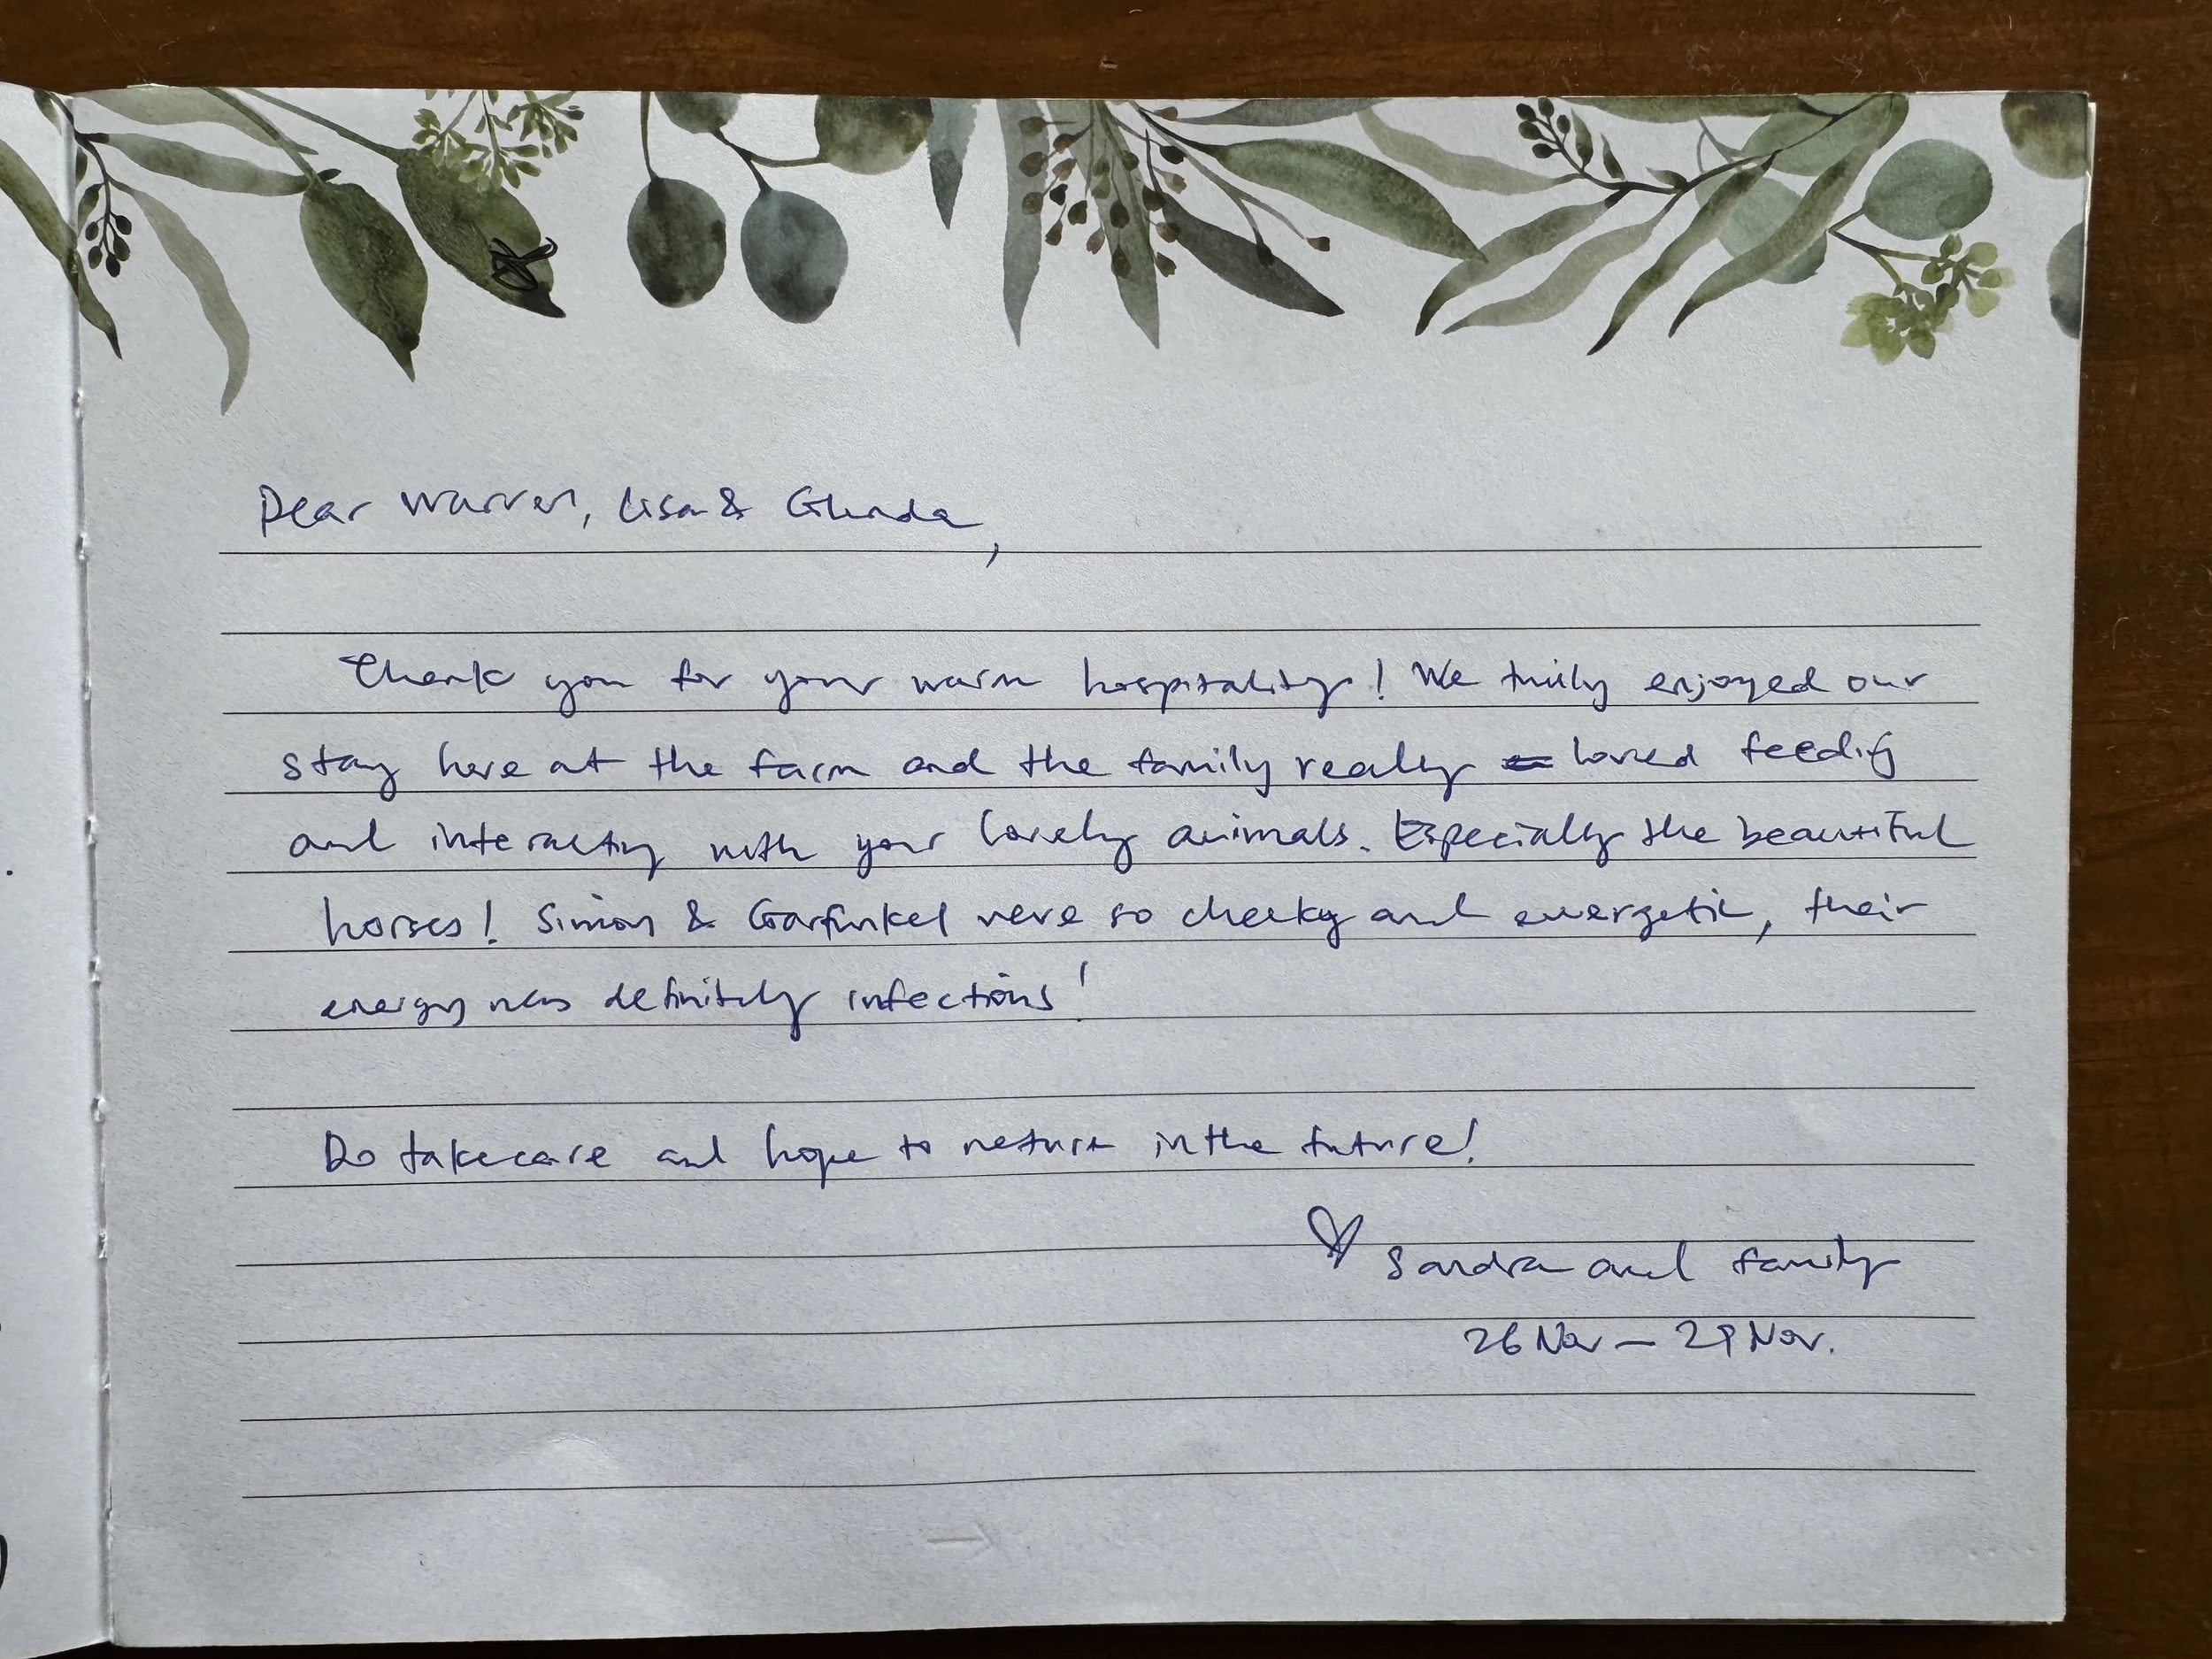 Dear Warren, Lisa & Glenda,
Thank you for your warm hospitality! We truly enjoyed our
stay here at the farm and the family really loved feeding
and interacting with your lovely animals. Especially the beautiful
horses! Simon & Garfunkel were so cheeky and energetic, their
energy was definitely infectious!
Do take care and hope to return in the future!
Sandra and family
26 Nov – 29 Nov.